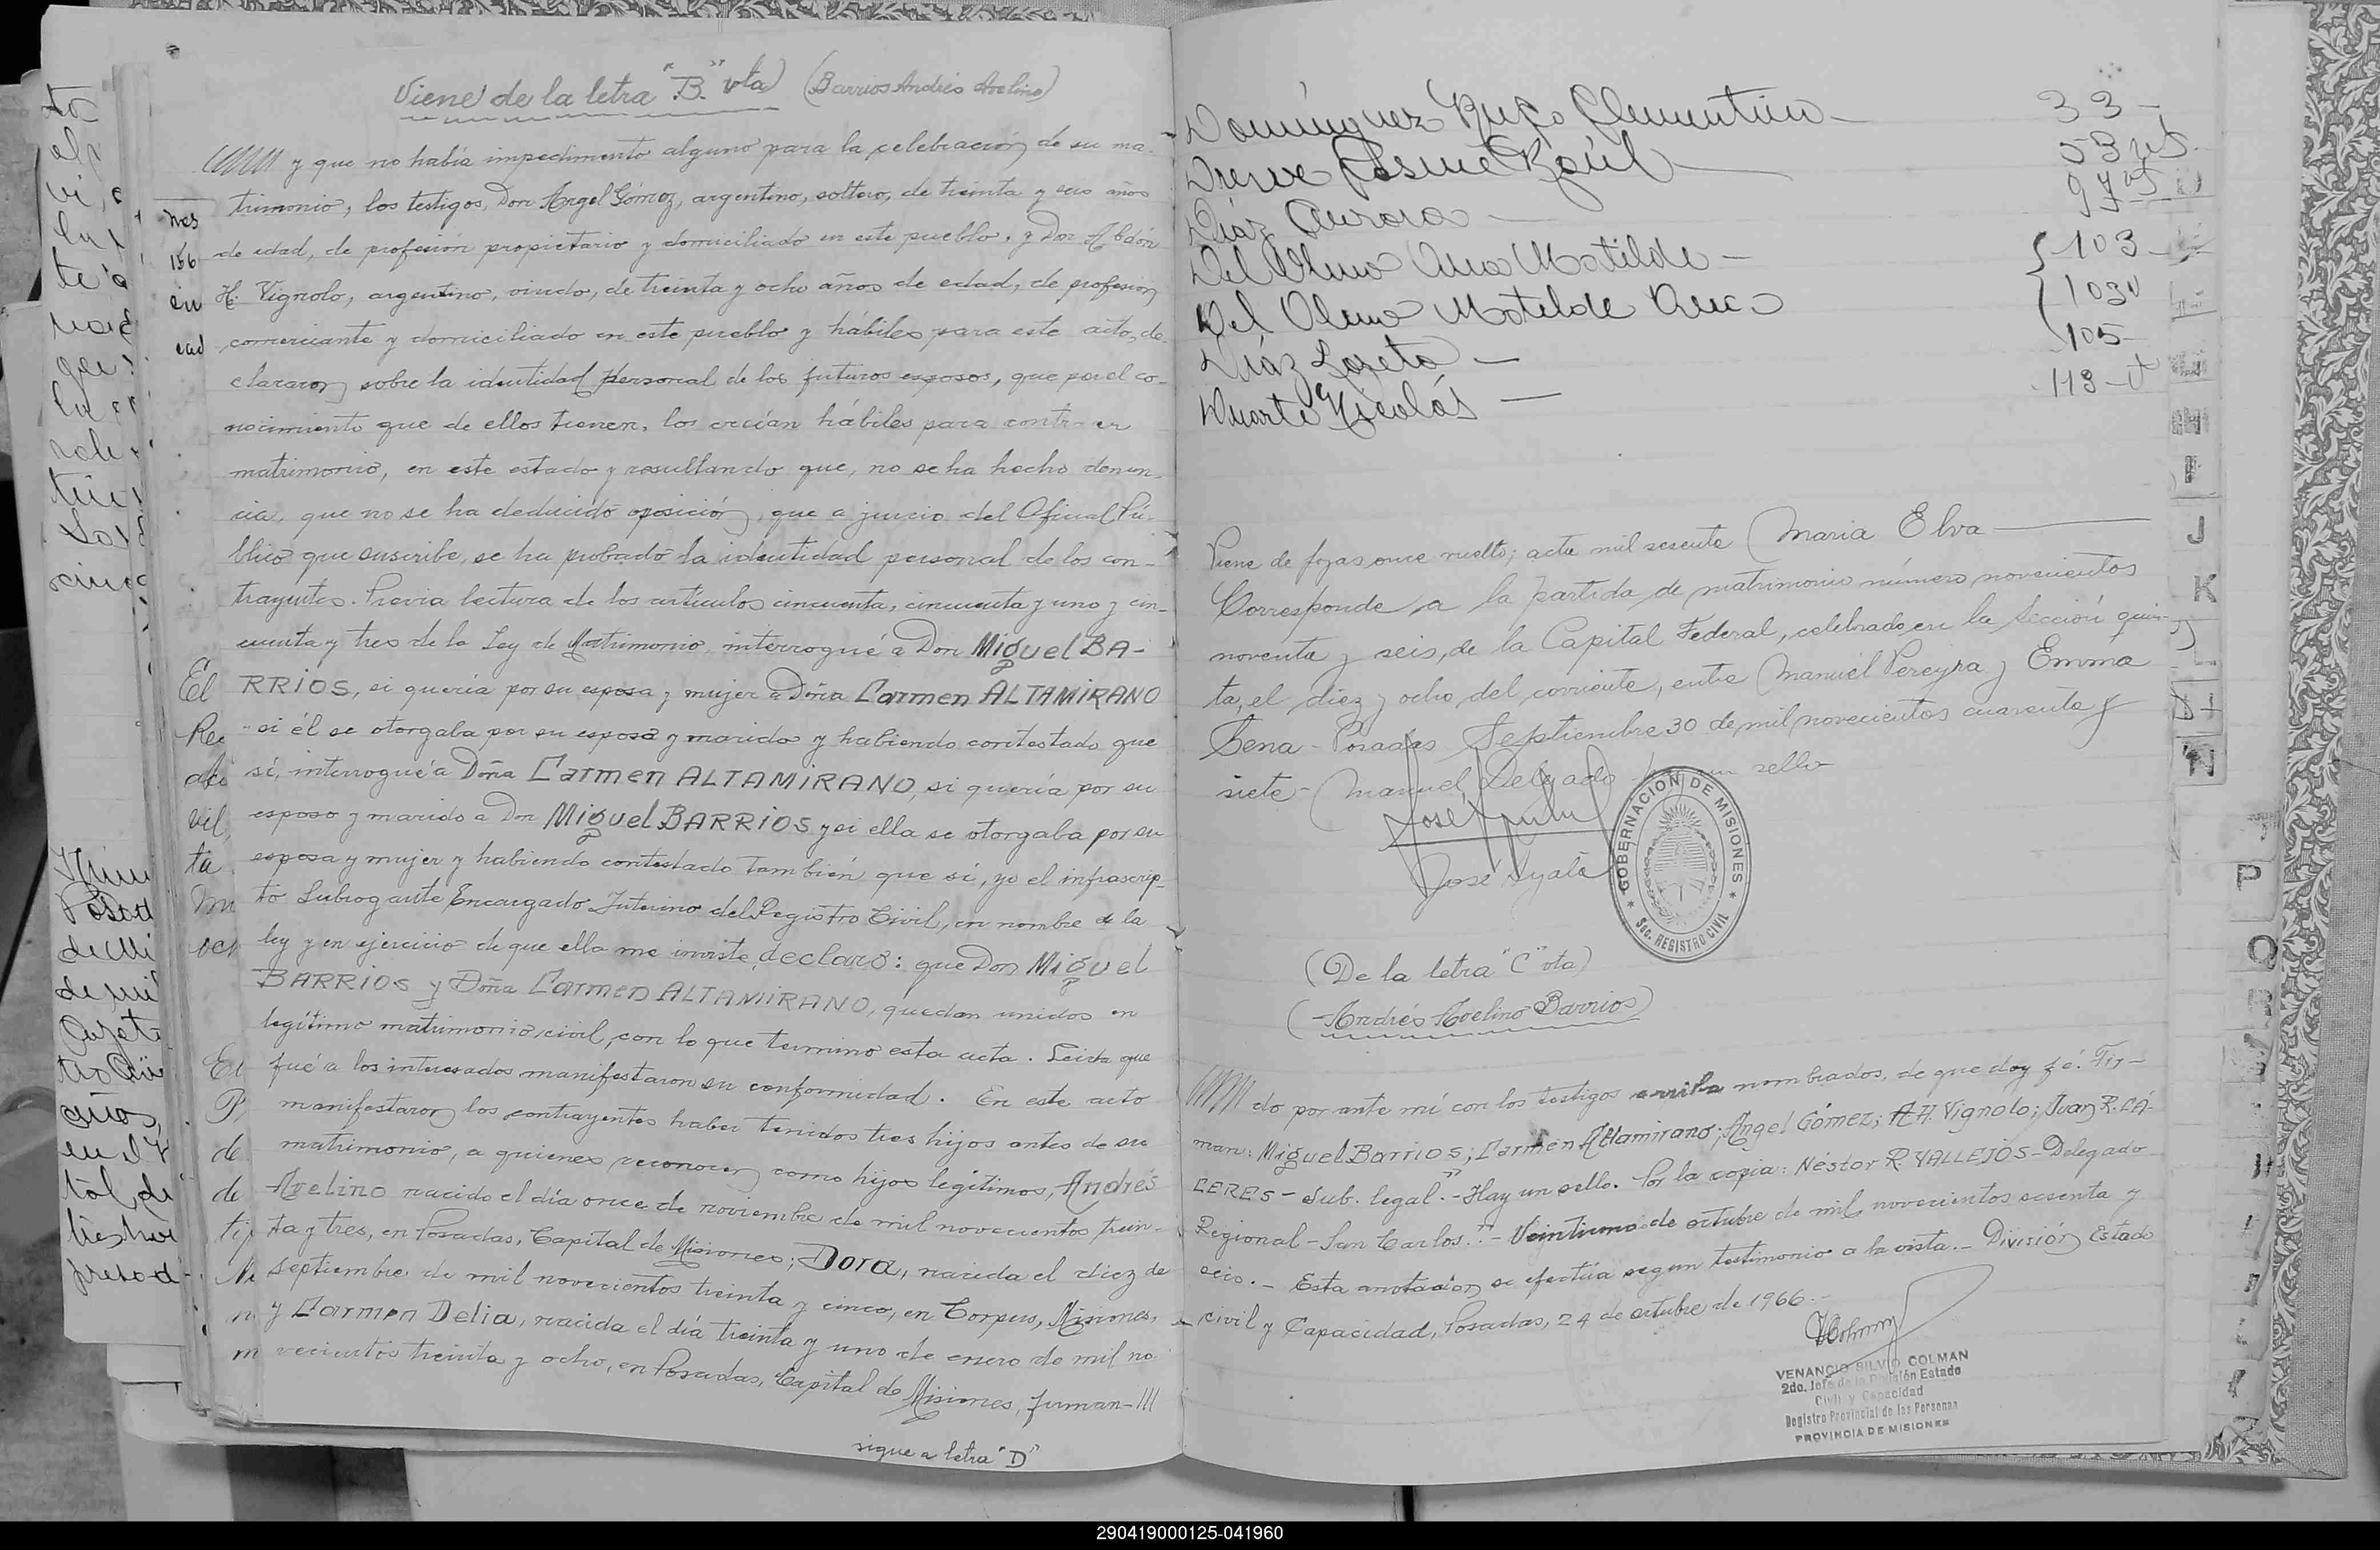 Viene de la letra "B" vta (Barrios Andrés Avelino)
//// y que no había impedimento alguno para la celebración de su ma-
trimonio, los testigos, Don Angel Gómez, argentino, soltero, de treinta y seis años
de edad, de profesión propietario y domiciliado en este pueblo, y Don Abdón
H. Vignolo, argentino, viudo, de treinta y ocho años de edad, de profesion
comerciante y domiciliado en este pueblo y hábiles para este acto, de-
clararon sobre la identidad personal de los futuros esposos, que por el co-
nocimiento que de ellos tienen, los creían hábiles para contraer
matrimonio, en este estado y resultando que, no se ha hecho denun-
cia, que no se ha deducido oposición, que a juicio del Oficial Pú-
blico que suscribe, se ha probado la identidad personal de los con-
trayentes. Previa lectura de los artículos cincuenta, cincuenta y uno y cin-
cuenta y tres de la Ley de Matrimonio, interrogué a Don Miguel BA-
RRIOS, si quería por su esposa y mujer a Doña Carmen ALTAMIRANO
si él se otorgaba por su esposo y marido y habiendo contestado que
sí, interrogué a Doña Carmen ALTAMIRANO, si quería por su
esposo y marido a Don Miguel BARRIOS y si ella se otorgaba por su
esposa y mujer y habiendo contestado también que sí, yo el infrascrip-
to Subrogante Encargado Interino del Registro Civil, en nombre de la
ley y en ejercicio de que ella me inviste, declaro: que Don Miguel
BARRIOS y Doña Carmen ALTAMIRANO, quedan unidos en
legítimo matrimonio civil, con lo que termino esta acta. Leida que
fué a los interesados manifestaron su conformidad. En este acto
manifestaron los contrayentes haber tenidos tres hijos antes de su
matrimonio, a quienes reconocen como hijos legítimos, Andrés
Avelino nacido el día once de noviembre de mil novecientos trein-
ta y tres, en Posadas, Capital de Misiones; Dora, nacida el diez de
septiembre de mil novecientos treinta y cinco, en Corpus, Misiones,
y Carmen Delia, nacida el día treinta y uno de enero de mil no-
vecientos treinta y ocho, en Posadas, Capital de Misiones, firman-///
sigue a letra "D"
Domínguez Clementino 33 -
Raúl 53 vta
Díaz Aurora - 97 vta
Del Olmo Ana Matilde - 103
Del Olmo Matilde Ana 103 v
Díaz Loreto - 105
Duarte Nicolás - 118 - vt
H
I
J
K
L
N
P
Q
Viene de fojas once vuelto; acta mil sesenta María Elva
Corresponde a la partida de matrimonio número novecientos
noventa y seis, de la Capital Federal, celebrado en la Sección quin-
ta, el diez y ocho del corriente, entre Manuel Pereyra y Emma
Sena - Posadas Septiembre 30 de mil novecientos cuarenta y
siete - Manuel Delgado Hay un sello
José Ayala
GOBERNACION DE MISIONES
Sec. REGISTRO CIVIL
(De la letra "C" vta)
(Andrés Avelino Barrios)
//// do por ante mí con los testigos arriba nombrados, de que doy fé. Fir-
man: Miguel Barrios; Carmen Altamirano; Angel Gómez; A.H. Vignolo; Juan R. CÁ-
CERES - Sub. legal." - Hay un sello. Por la copia: Néstor R. VALLEJOS - Delegado
Regional - San Carlos." - Veintiuno de octubre de mil novecientos sesenta y
seis. - Esta anotación se efectúa segun testimonio a la vista. - División Estado
civil y Capacidad, Posadas, 24 de octubre de 1966. -
VENANCIO SILVIO COLMAN
2do. Jefe de la División Estado
Civil y Capacidad
Registro Provincial de las Personas
PROVINCIA DE MISIONES
290419000125-041960